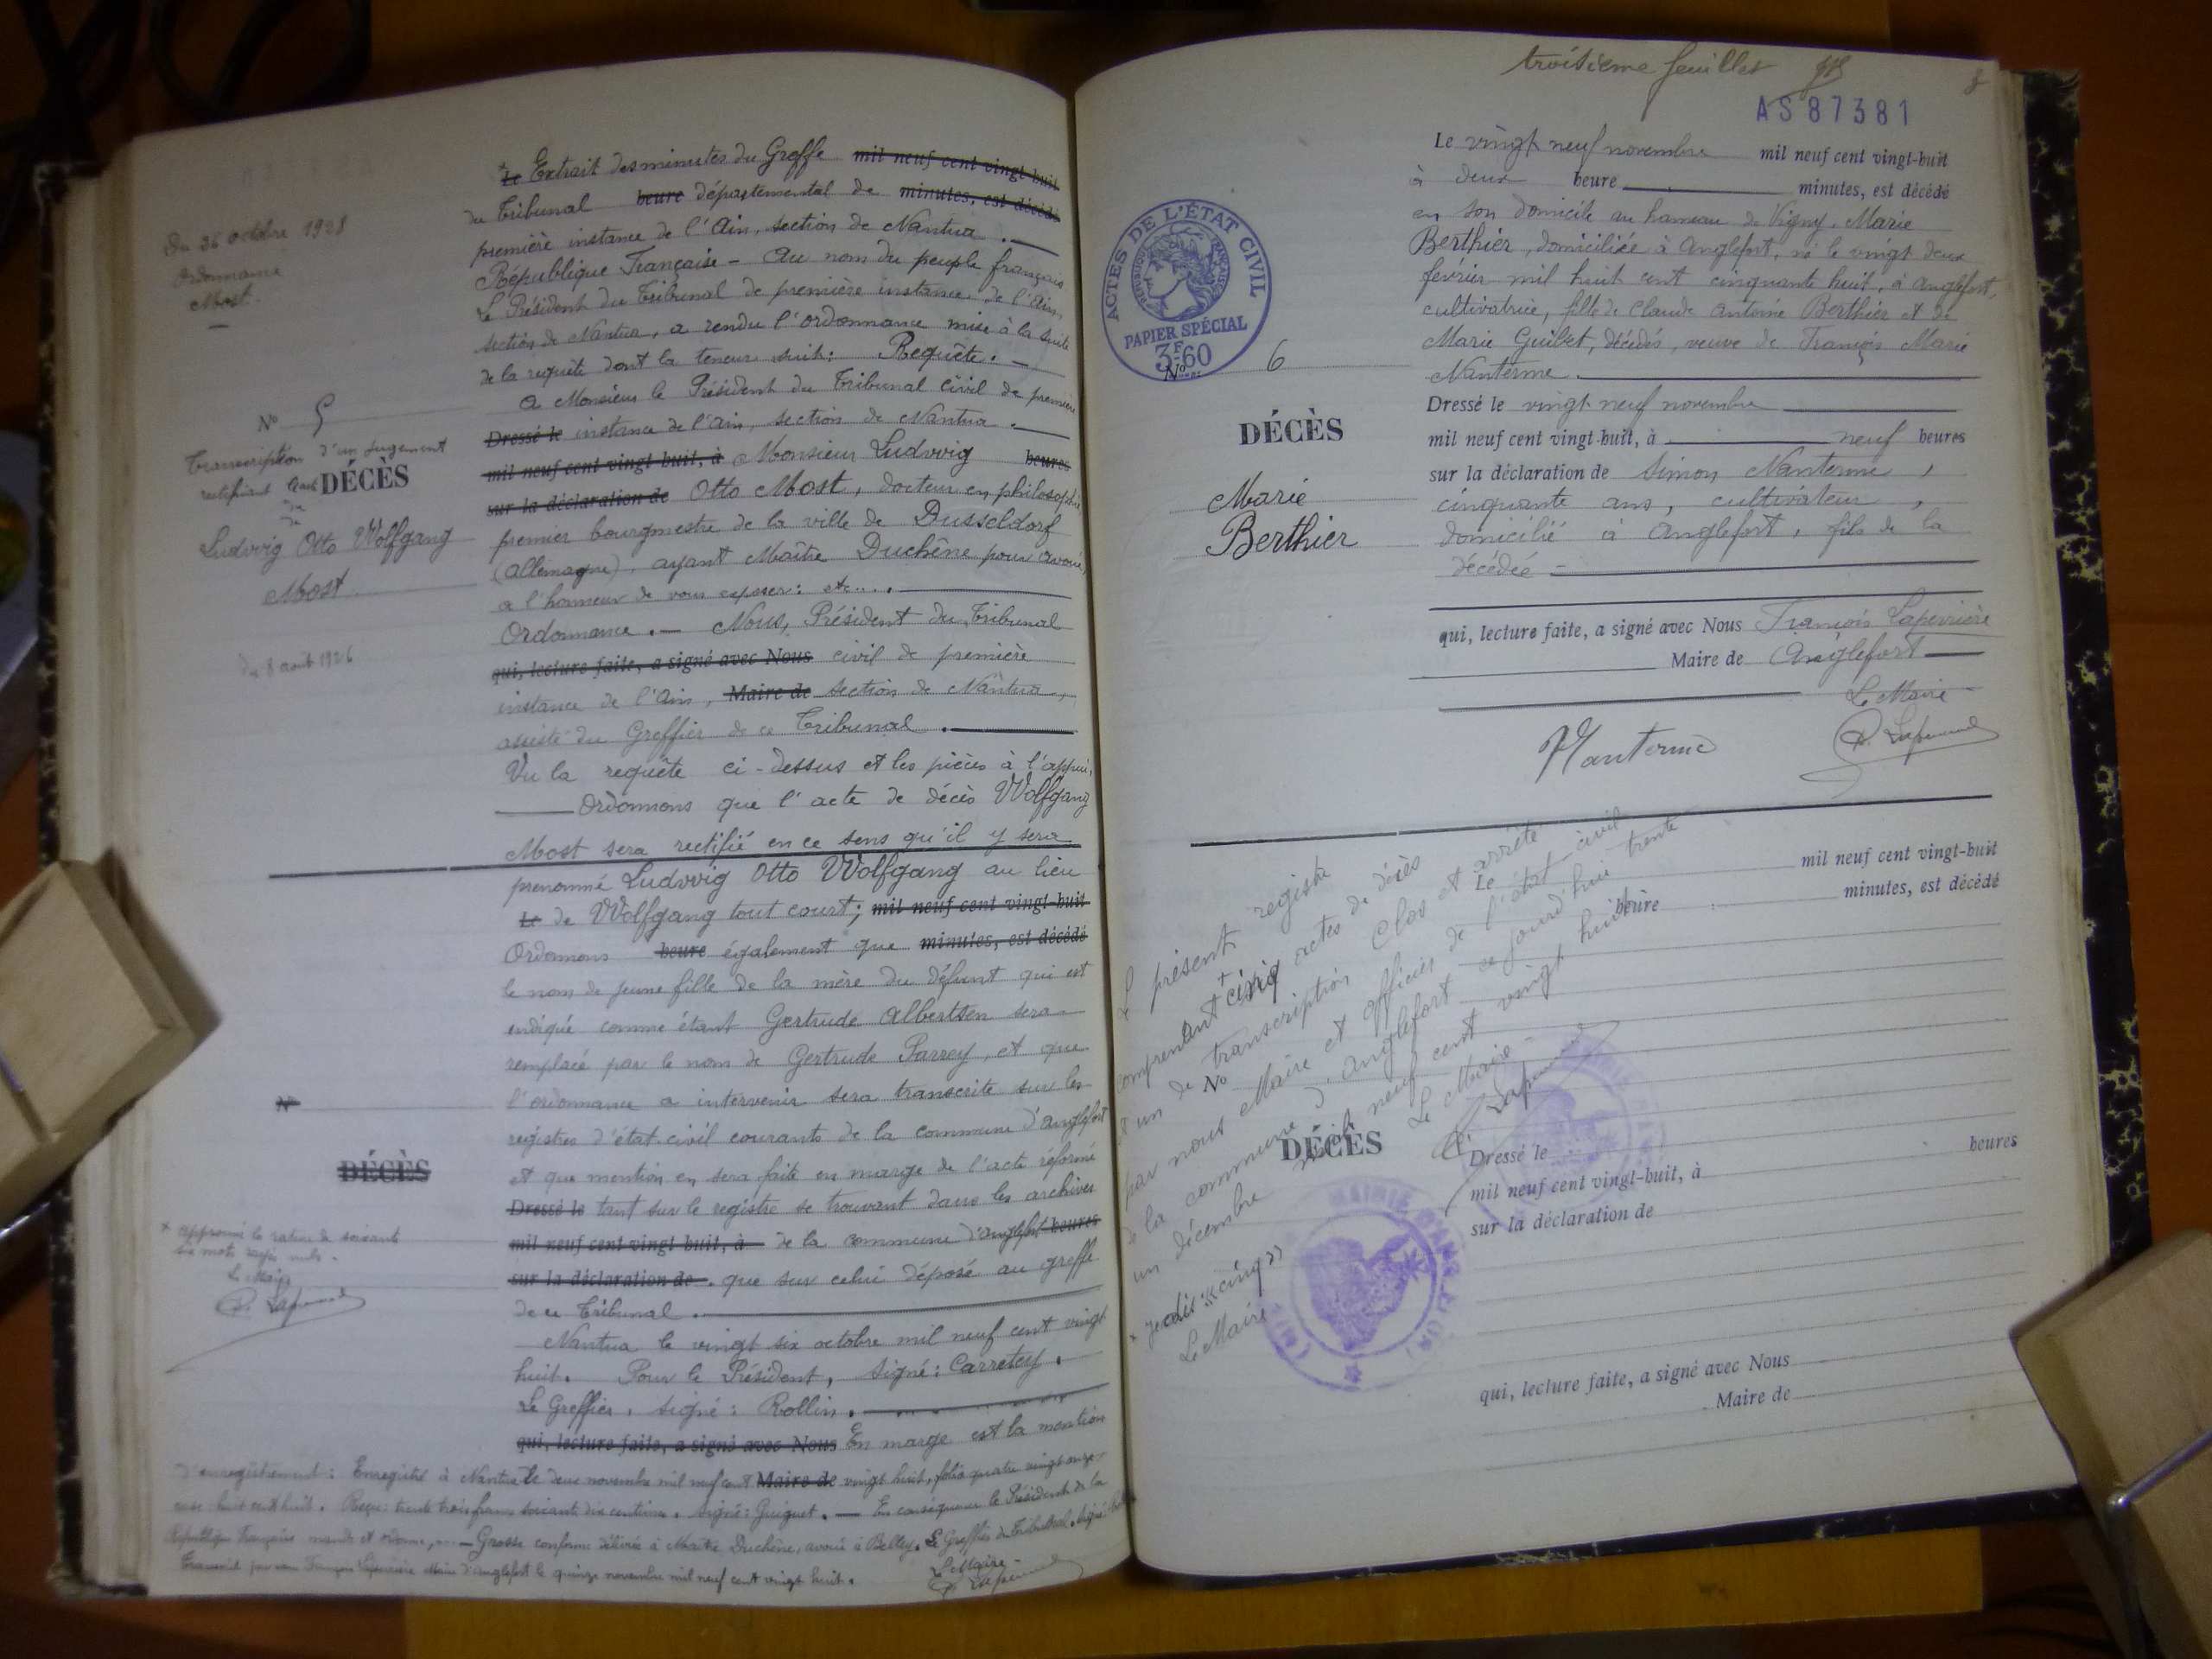 Du 26 octobre 1928
Ordonnance
Most.
Nº 5
Transcription d'un jugement
rectifiant l'acte DÉCÈS
de
Ludwig Otto Wolfgang
Most
Du 8 août 1926
+ Le Extrait des minutes du Greffe mil neuf cent vingt-huit
du Tribunal heure départemental de minutes, est décédé
première instance de l'Ain, section de Nantua .—
République Française - Au nom du peuple français
Le Président du Tribunal de première instance de l'Ain
section de Nantua, a rendu l'ordonnance mise à la suite
de la requête dont la teneur suit: Requête. —
A Monsieur le Président du Tribunal civil de première
Dressé le instance de l'Ain, section de Nantua .—
mil neuf cent vingt-huit, à Monsieur Ludwig heures
sur la déclaration de Otto Most, docteur en philosophie,
premier bourgmestre de la ville de Dusseldorf
(Allemagne), ayant Maître Duchêne pour avoué,
a l'honneur de vous exposer: etc....
Ordonnance .— Nous, Président du Tribunal
qui, lecture faite, a signé avec Nous civil de première
instance de l'Ain, Maire de section de Nantua,
assisté du Greffier de ce Tribunal .—
Vu la requête ci-dessus et les pièces à l'appui,
— Ordonnons que l'acte de décès Wolfgang
Most sera rectifié en ce sens qu'il y sera
prenommé Ludwig Otto Wolfgang au lieu
Le de Wolfgang tout court; mil neuf cent vingt-huit
Ordonnons heure également que minutes, est décédé
le nom de jeune fille de la mère du défunt qui est
indiqué comme étant Gertrude Albertsen sera
remplacé par le nom de Gertrude Sarrey, et que
l'ordonnance a intervenir sera transcrite sur les
registres d'état civil courants de la commune d'Anglefort
et que mention en sera faite en marge de l'acte réformé
Dressé le tant sur le registre se trouvant dans les archives
mil neuf cent vingt-huit, à de la commune d'Anglefort heures
sur la déclaration de que sur celui déposé au greffe
de ce Tribunal .—
Nantua le vingt six octobre mil neuf cent vingt
huit. Pour le Président, signé: Carretey.
Le Greffier, signé: Rollin.
qui, lecture faite, a signé avec Nous En marge est la mention
d'enregistrement: Enregistré à Nantua le deux novembre mil neuf cent Maire de vingt huit, folio quatre vingt onze
case huit cent huit. Reçu: trente trois francs soixante dix centimes. signé: Guiguet. — En conséquence le Président de la
République Française mande et ordonne, ... — Grosse conforme délivrée à Maître Duchêne, avoué à Belley. Le Greffier du Tribunal. Signé:
Transcrit par nous François Laperrière Maire d'Anglefort le quinze novembre mil neuf cent vingt huit.
Le Maire -
Nº
DÉCÈS
+ Approuvé la rature de soixante
six mots rayés nuls -
Le Maire
troisième feuillet
AS 87381
ACTES DE L'ÉTAT CIVIL
RÉPUBLIQUE FRANÇAISE
PAPIER SPÉCIAL
3F.60
Nº 6
DÉCÈS
Marie
Berthier
Le vingt neuf novembre mil neuf cent vingt-huit
à deux heure — minutes, est décédé
en son domicile au hameau de Vigny, Marie
Berthier, domiciliée à Anglefort, né le vingt deux
février mil huit cent cinquante huit, à Anglefort,
cultivatrice, fille de Claude Antoine Berthier et de
Marie Guilbet, décédés, veuve de François Marie
Nanterme.
Dressé le vingt neuf novembre
mil neuf cent vingt-huit, à — neuf heures
sur la déclaration de Simon Nanterme,
cinquante ans, cultivateur,
domicilié à Anglefort, fils de la
décédée —
qui, lecture faite, a signé avec Nous François Laperrière
Maire de Anglefort —
Le Maire -
Nanterme
Le présent registre
comprenant + cinq actes de décès
et un de transcription Clos et arrêté
par nous Maire et officier de l'état civil
de la commune d'Anglefort ce jourd'hui trente
un décembre mil neuf cent vingt huit
Le Maire -
+ je dis: «cinq»
Le Maire
Le mil neuf cent vingt-huit
heure minutes, est décédé
Nº
DÉCÈS
Dressé le
mil neuf cent vingt-huit, à heures
sur la déclaration de
qui, lecture faite, a signé avec Nous
Maire de
MAIRIE D'ANGLEFORT (AIN)